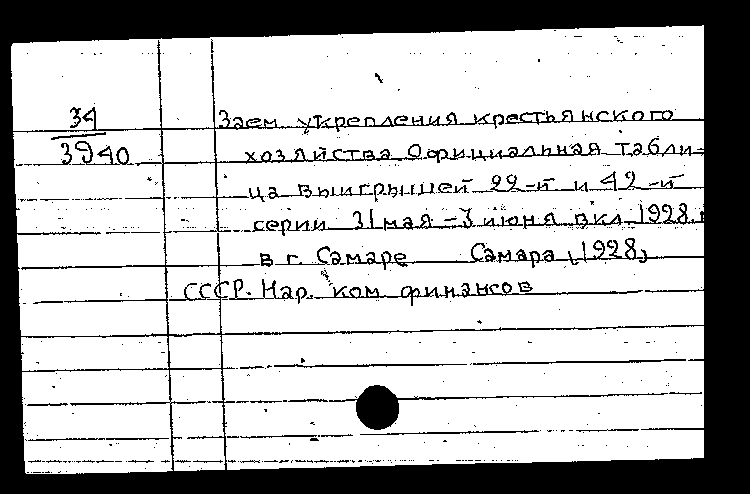 34
3940
Заем укрепления крестьянского
хозяйства Официальная табли-
ца выигрышей 22-й и 42-й
серии 31 мая - 3 июня вкл 1928 г
в г. Самаре Самара, 1928,
СССР. Нар. ком финансов